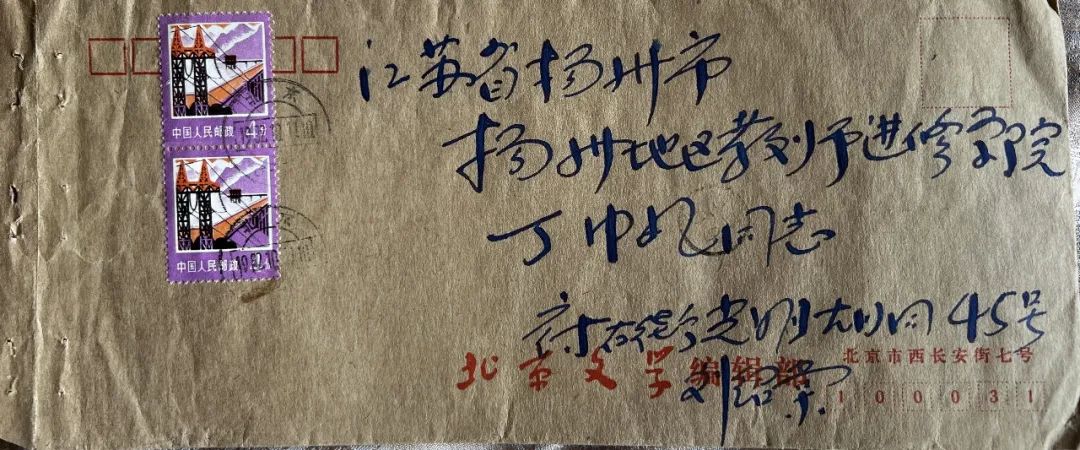 中国人民邮政 4分
中国人民邮政
江苏省扬州市
扬州地区教师进修学院
丁中凡同志
光明大川同45号
北京文学编辑部
北京市西长安街七号
刘绍棠
100031